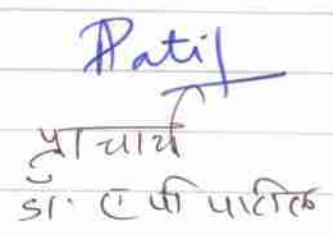 Patil
प्राचार्य
डा. ए पी पाटील